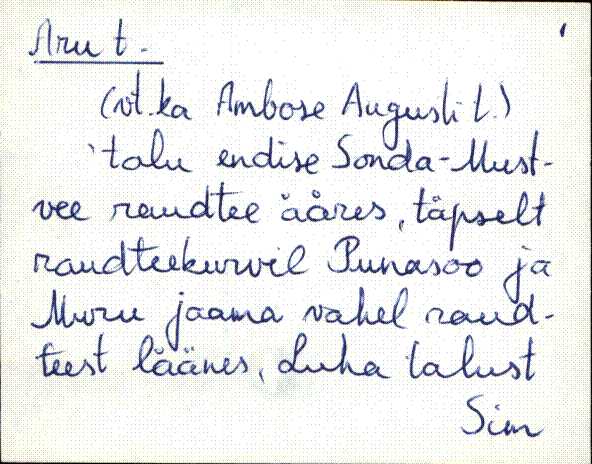 Aru t.
(vt. ka Ambose Augusti t.)
talu endise Sonda-Must-
vee raudtee ääres, täpselt
raudteekurvil Punasoo ja
Muru jaama vahel raud-
teest läänes, Luha talust
Sim